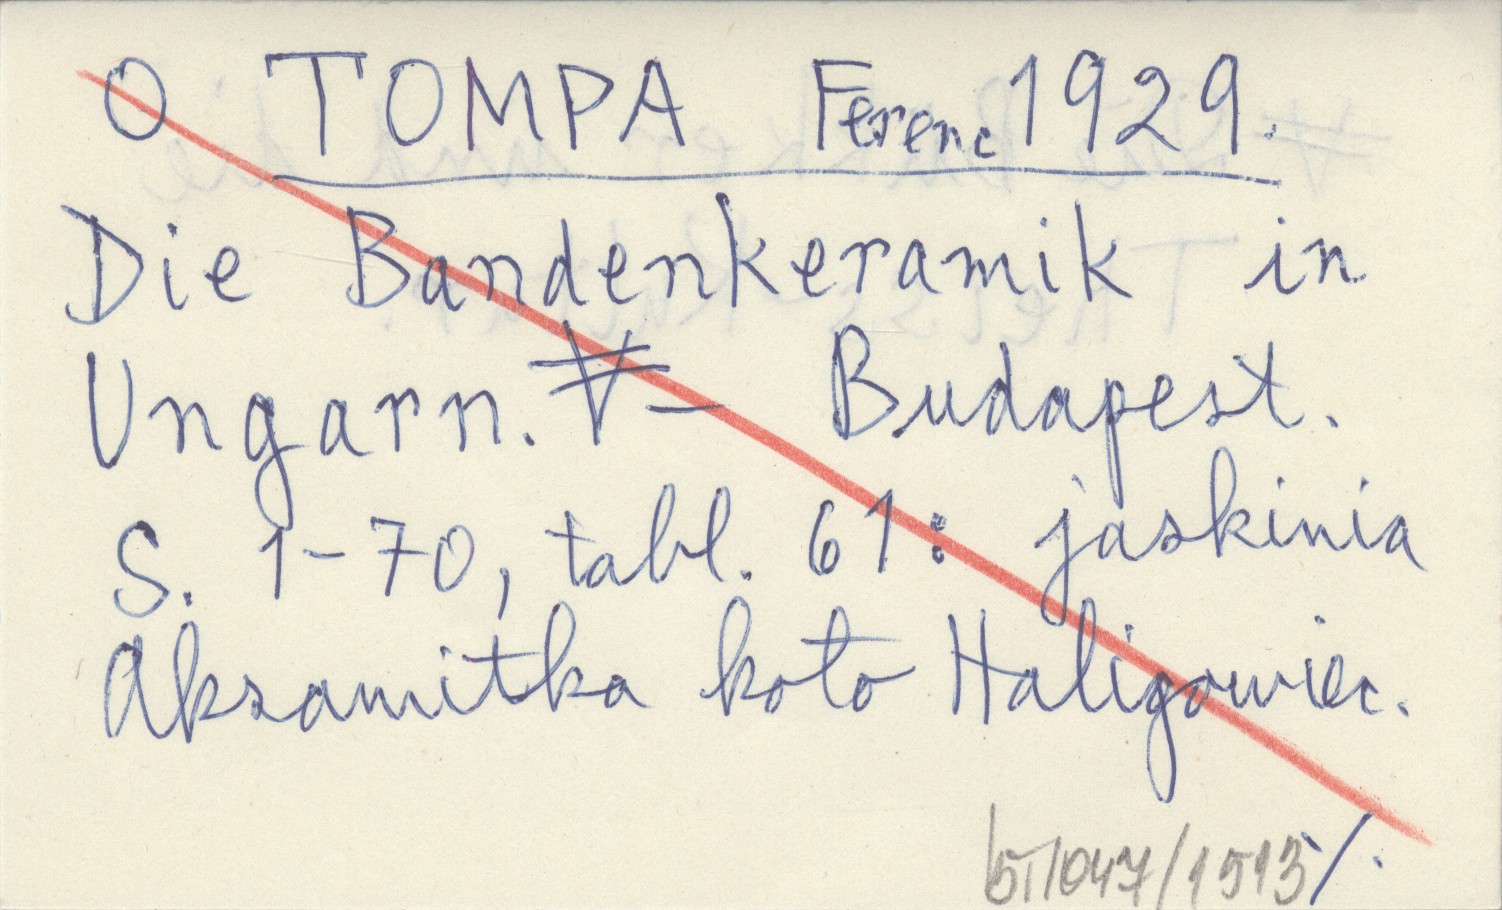 O TOMPA Ferenc 1929.
Die Bandenkeramik in
Ungarn. ₩ – Budapest.
S. 1–70, tabl. 61: jaskinia
Aksamitka koło Haligowiec.
/.